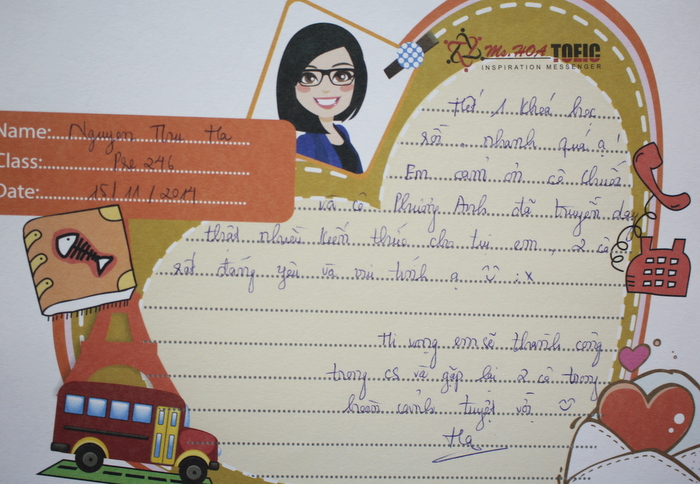 Ms. HOA TOEIC
INSPIRATION MESSENGER
Name: Nguyen Thu Ha
Class: Pre 246
Date: 15/11/2014
Hết 1 khoá học
rồi, nhanh quá ạ!
Em cảm ơn cô Thuần
và cô Phương Anh đã truyền dạy
thật nhiều kiến thức cho tụi em, 2 cô
rất đáng yêu và vui tính ạ :x
Hi vọng em sẽ thành công
trong cs và gặp lại 2 cô trong
hoàn cảnh tuyệt vời
Ha